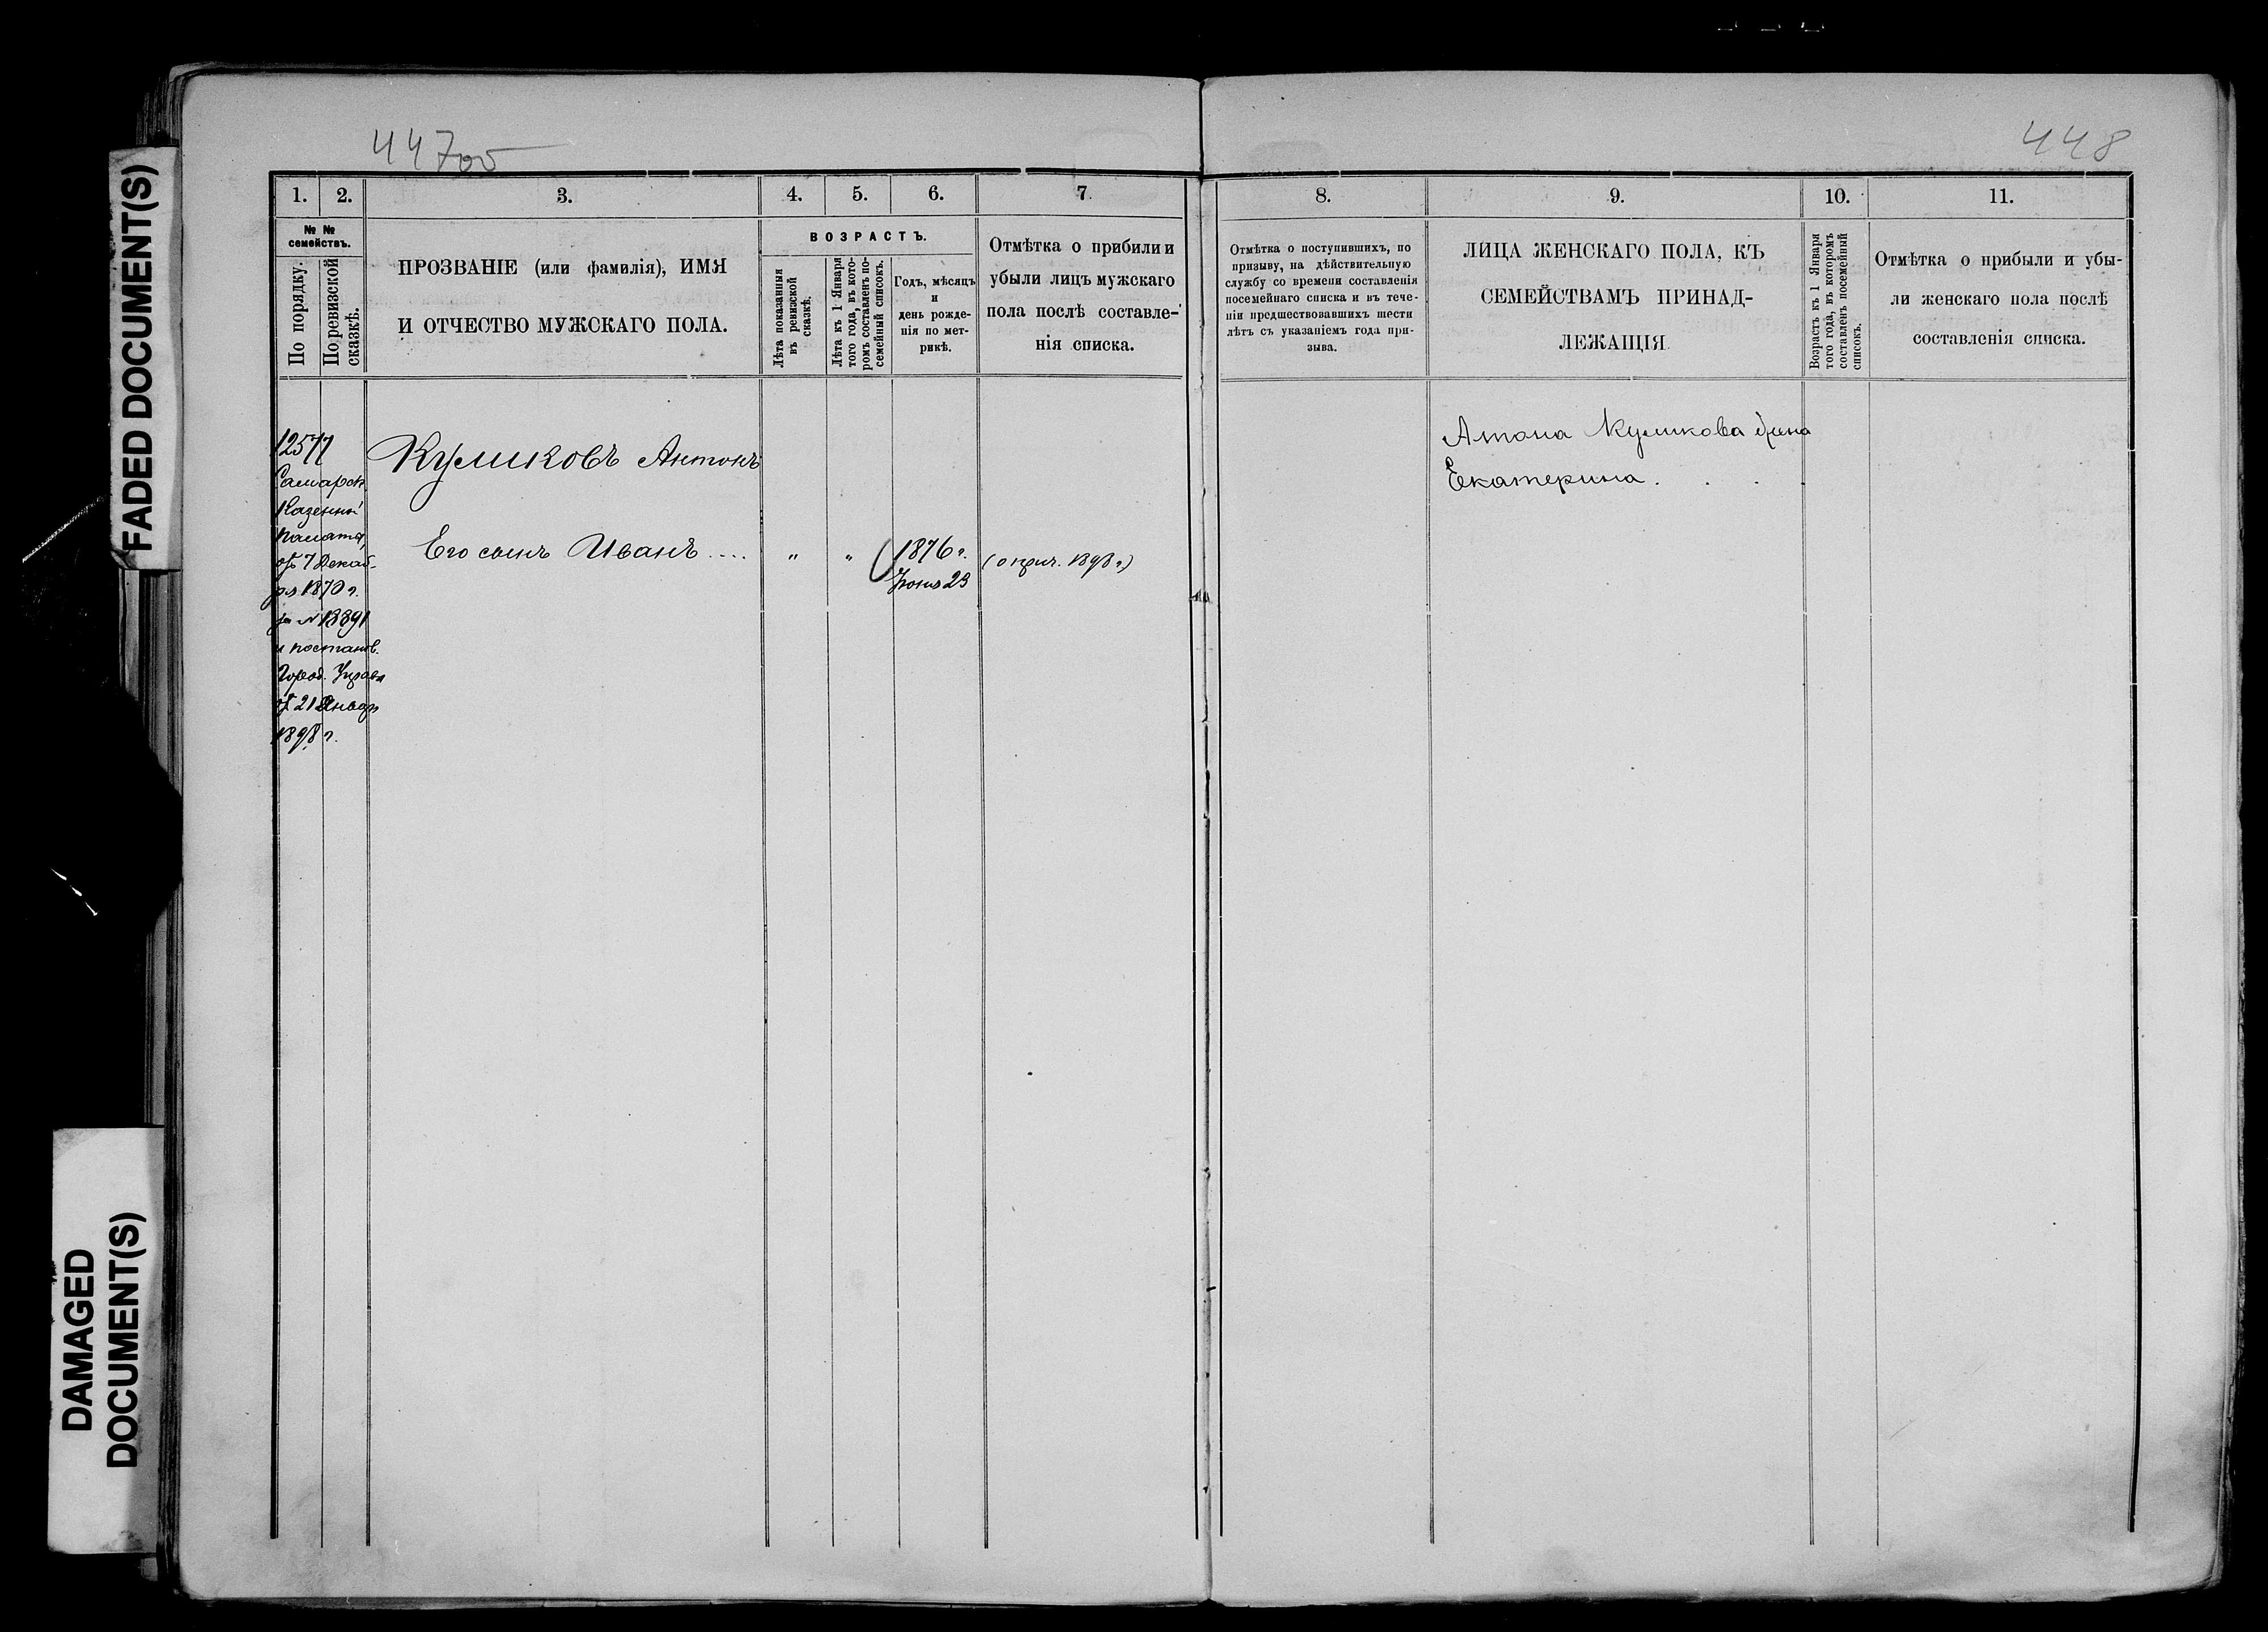 FADED DOCUMENT(S)
DAMAGED
DOCUMENT(S)
447об
1.
2.
3.
4.
5.
6.
7
№ №
семействъ.
По порядку.
По ревизской
сказкѣ.
ПРОЗВАНІЕ (или фамилія), ИМЯ
И ОТЧЕСТВО МУЖСКАГО ПОЛА.
ВОЗРАСТЪ.
Лѣта показанныя
въ ревизской
сказкѣ.
Лѣта къ 1 Января
того года, въ кото-
ромъ составленъ по-
семейный списокъ.
Годъ, мѣсяцъ
и
день рожде-
нія по мет-
рикѣ.
Отмѣтка о прибили и
убыли лицъ мужскаго
пола послѣ составле-
нія списка.
12577
Самарск.
Казенны
Палаты,
отъ 7 Декаб-
ря 1873 г.
за № 13391
и постанов.
Город. Управы
отъ 21 Январ
1898 г.
Куликовъ Антонъ
Его сынъ Иванъ ....
„
„
1876 г.
Іюня 23
( о прич. 1898 г.)
448
8.
9.
10.
11.
Отмѣтка о поступившихъ, по
призыву, на дѣйствительную
службу со времени составленія
посемейнаго списка и въ тече-
ніи предшествовавшихъ шести
лѣтъ съ указаніемъ года при-
зыва.
ЛИЦА ЖЕНСКАГО ПОЛА, КЪ
СЕМЕЙСТВАМЪ ПРИНАД-
ЛЕЖАЩІЯ
Возрастъ къ 1 Января
того года, въ которомъ
составленъ посемейный
списокъ.
Отмѣтка о прибыли и убы-
ли женскаго пола послѣ
составленія списка.
Атона Куликова жена
Екатерина . . . .